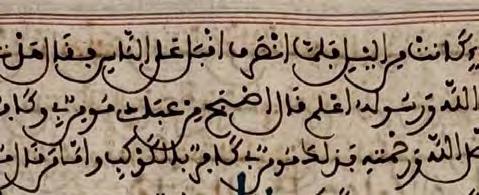 كانت من اليل فلما انصرف اقبل على الناس فقال هل
الله ورسوله اعلم قال اصبح من عبادي مومن بي
الله ورحمته فذلك مومن بي كافر بالكوكب واما من قال